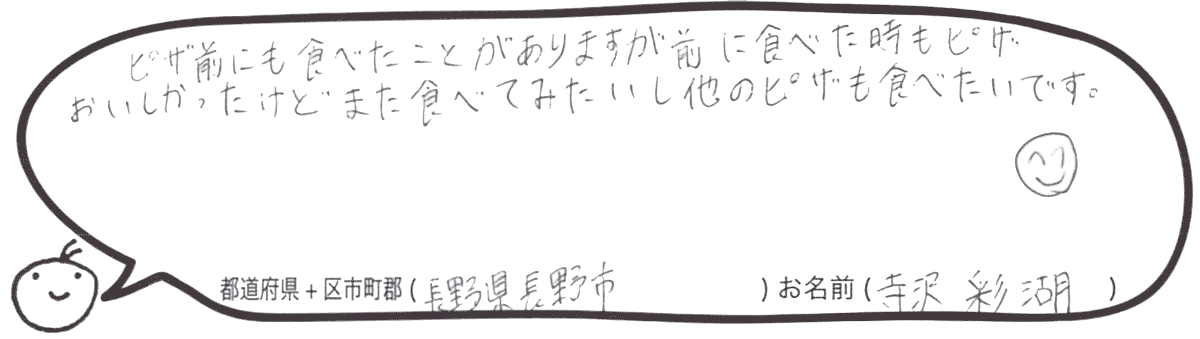 ピザ前にも食べたことがありますが前に食べた時もピザ
おいしかったけどまた食べてみたいし他のピザも食べたいです。
都道府県+区市町郡(長野県長野市)お名前(寺沢 彩湖)